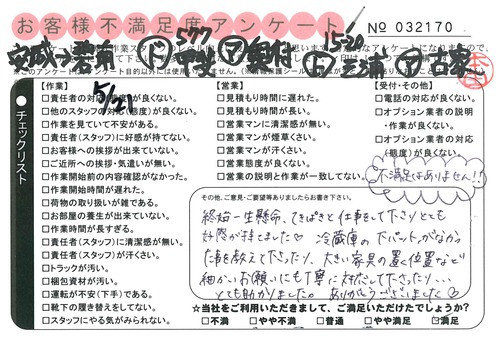 お客様不満足度アンケート
№ 032170
5/21
チェックリスト
【作業】
□責任者の対応(態度)が良くない。
□他のスタッフの対応(態度)が良くない。
□作業を見ていて不安がある。
□責任者(スタッフ)に好感が持てない。
□お客様への挨拶が出来ていない。
□ご近所への挨拶・気遣いが無い。
□作業開始前の内容確認がなかった。
□作業開始時間が遅れた。
□荷物の取り扱いが雑である。
□お部屋の養生が出来ていない。
□作業時間が長すぎる。
□責任者(スタッフ)に清潔感が無い。
□責任者(スタッフ)が汗くさい。
□トラックが汚い。
□梱包資材が汚い。
□運転が不安(下手)である。
□靴下の履き替えをしてない。
□スタッフにやる気がみられない。
【営業】
□見積もり時間に遅れた。
□見積もり時間が長い。
□営業マンに清潔感が無い。
□営業マンが煙草くさい。
□営業マンが汗くさい。
□営業態度が良くない。
□営業の説明と作業が一致してない。
【受付・その他】
□電話の対応が良くない。
□オプション業者の説明
・作業が良くない。
□オプション業者の対応
(態度)が良くない。
不満足はありません!!
その他、ご意見・ご要望等ありましたらお書き下さい。
終始一生懸命、てきぱきと仕事をして下さりとても
好感が持てました♡ 冷蔵庫の下パットがなかっ
た事を教えて下さったり、大きい家具の置く位置など
細かいお願いにも丁寧に対応して下さったり...
とても助かりました。ありがとうございました♡
☆当社をご利用いただきまして、ご満足いただけたでしょうか?
□不満 □やや不満 □普通 □やや満足 ☑満足